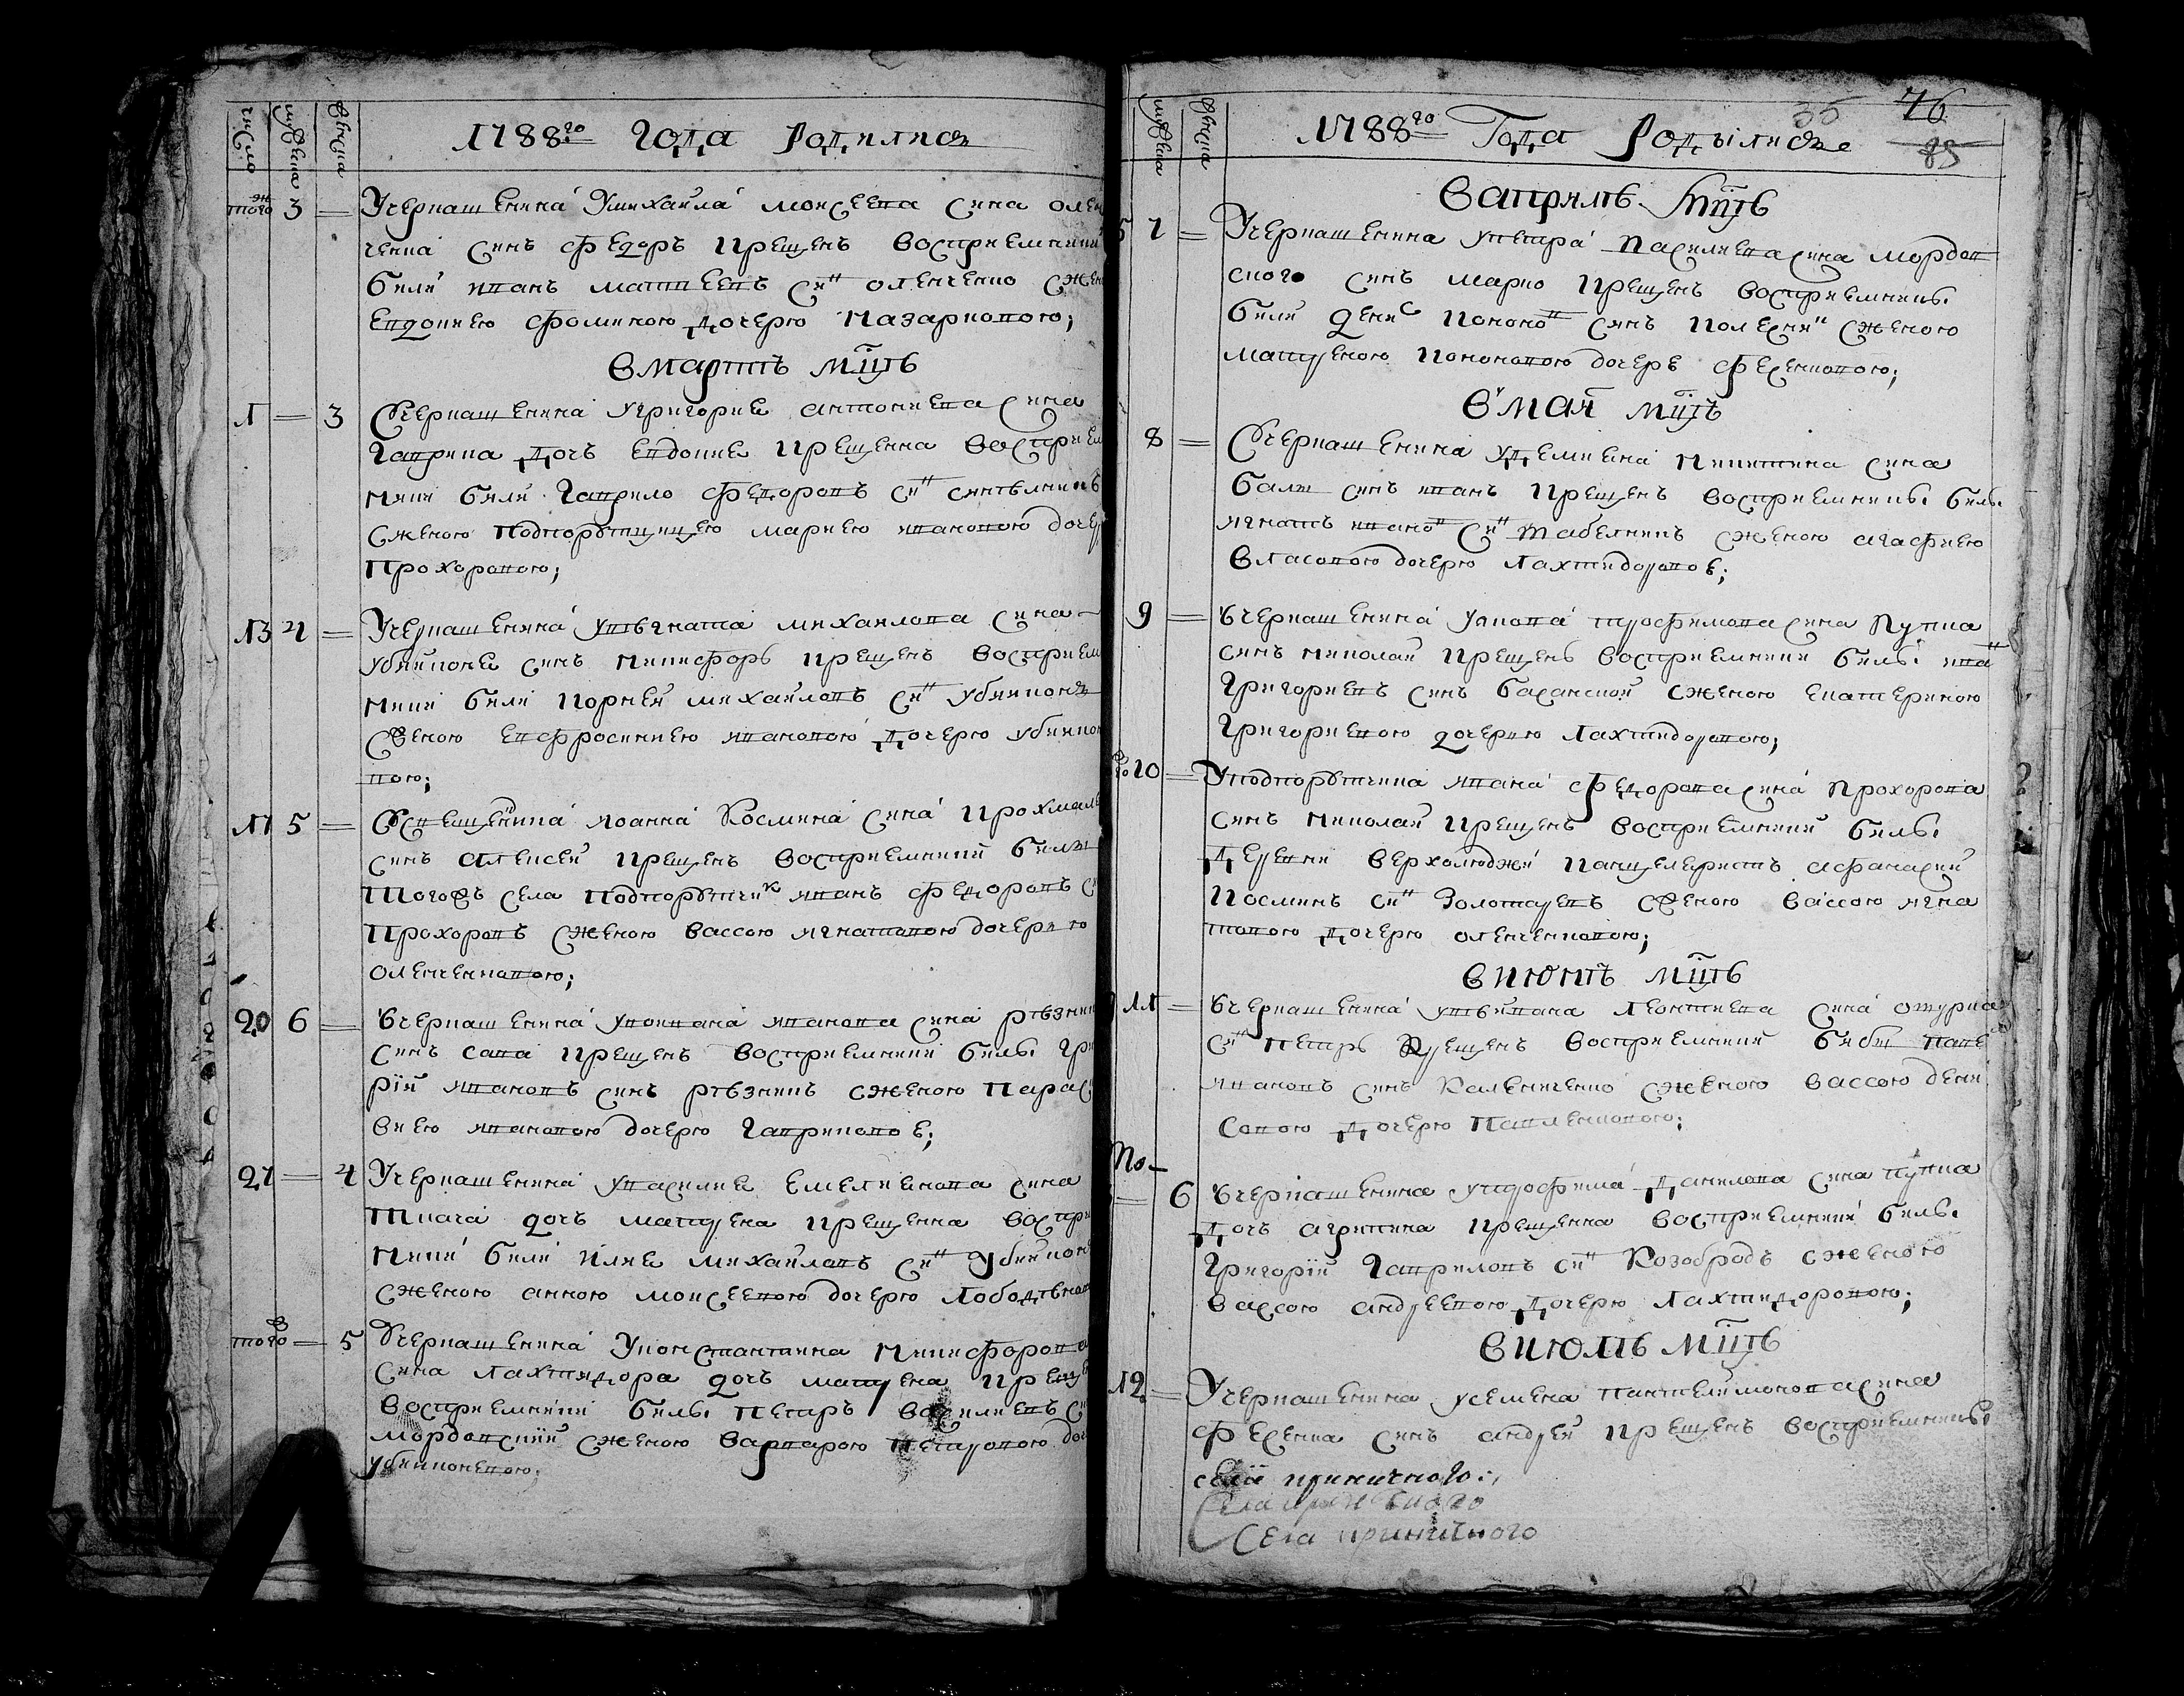 число
мужеска
женска
1788го Года Родилися
того ж 3 Учеркашенина Умихаила моисеева сина олен
ченка синъ федоръ крещенъ восприемники
били иванъ матвеевъ син оленченко сжен
евдокиею фоминою дочерю Назарковою;
Вмартъ мцъ
1 3 Учеркашенина Угригорие антониева сина
Гаврика дочъ евдокие крещенна восприем
ники били Гаврило федоровъ син
сженою подпорутчицею мариею ивановою дочер
Прохоровою;
13 4 Учеркашенина Уигната михаилова сина
убийконе синъ никифоръ крещенъ восприем
ники били корней михаиловъ син убийконя
сженою евфросиниею ивановою дочерю убийкон
вою;
17 5 Усвещенника иоанна Космина сина Крохмал
синъ алексей крещенъ восприемники били
тогожъ села подпорутчик иванъ федоровъ с
Прохоровъ сженою вассою игнатовою дочерю
Оленченковою;
20 6 Учеркашенина Укондана иванова сина резник
синъ сава крещенъ восприемники били Гри
рий ивановъ синъ резникъ сженою Парас
виею ивановою дочерю Гавриковое;
27 4 Учеркашенина Увасилие Емелиенова сина
Ткача дочъ матрена крещенна воспри
ники били Илие михайловъ син Убийкон
сженою анною моисеевою дочерю Лободен
того ж 5 Учеркашенина Уконстантина Никифорова
сина Лахтидора дочъ матрена креще
восприемники били Петръ василиевъ си
мордовский сженою варварою Петровою до
убийконевою;
35 46
85
мужеска
женска
1788го Года Родылисе
Ваприлъ мцъ
7 Учеркашенина Упетра василиева сина мордов
ского синъ марко крещенъ восприемники
били денис кононов синъ сженою
матреною кононовою дочере фесенковою;
Вмаи мцъ
8 Учеркашенина Удемиена Никитина сина
синъ иванъ крещенъ восприемники били
игнатъ иванов син табелникъ сженою агафиею
власовою дочерю Лахтидоровое;
9 Учеркашенина Уиова трофимова сина Купка
синъ николай крещенъ восприемники били ива
Григориевъ синъ басанский сженою екатериною
Григориевою дочерию Лахтидоровою;
10 Уподпорутчика ивана федорова сина Прохорова
синъ николай крещенъ восприемники били
деревни верхолюджи канцеляристъ афанасий
косминъ син Золотаревъ сженою вассою игна
товою дочерю оленченковою;
Виюнъ мцъ
11 Учеркашенина Леонтиева сина отурка
син петръ крещенъ восприемники били
ивановъ синъ Каленченко сженою вассою дени
совою дочерю Павленковою;
6 Учеркашенина Утрофима данилова сина Купка
дочъ агрипина крещенна восприемники били
Григорий Гавриловъ син Козобродъ сженою
вассою андреевою дочерю Лахтидоровою;
Виюлъ мцъ
12 Учеркашенина Усемена Пантелимонова сина
фесенка синъ андрей крещенъ восприемники
села криничного
Села криничного
Села криничного